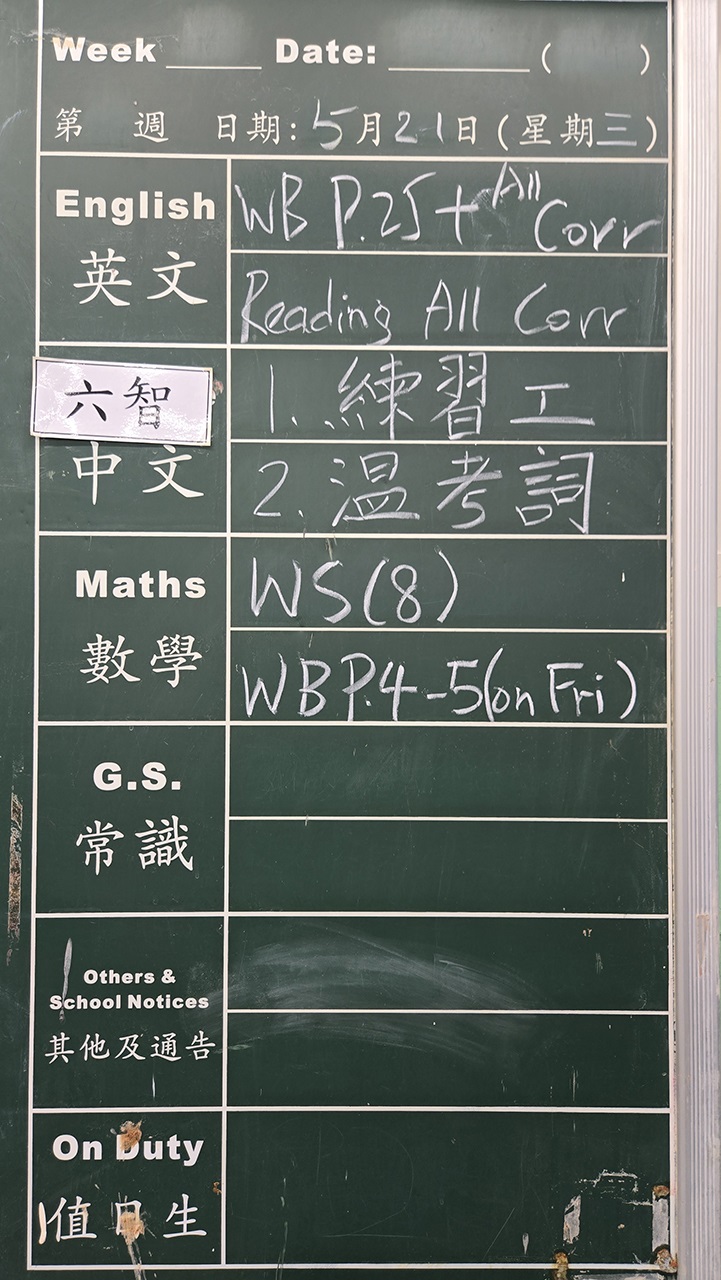 Week ____ Date: ______ ( )
第 週 日期: 5月21日 (星期三)
English
英文
WB P.25 + All Corr
Reading All Corr
六智
中文
1. 練習工
2. 溫考詞
Maths
數學
WS(8)
WB P.4-5(on Fri)
G.S.
常識
Others &
School Notices
其他及通告
On Duty
值日生